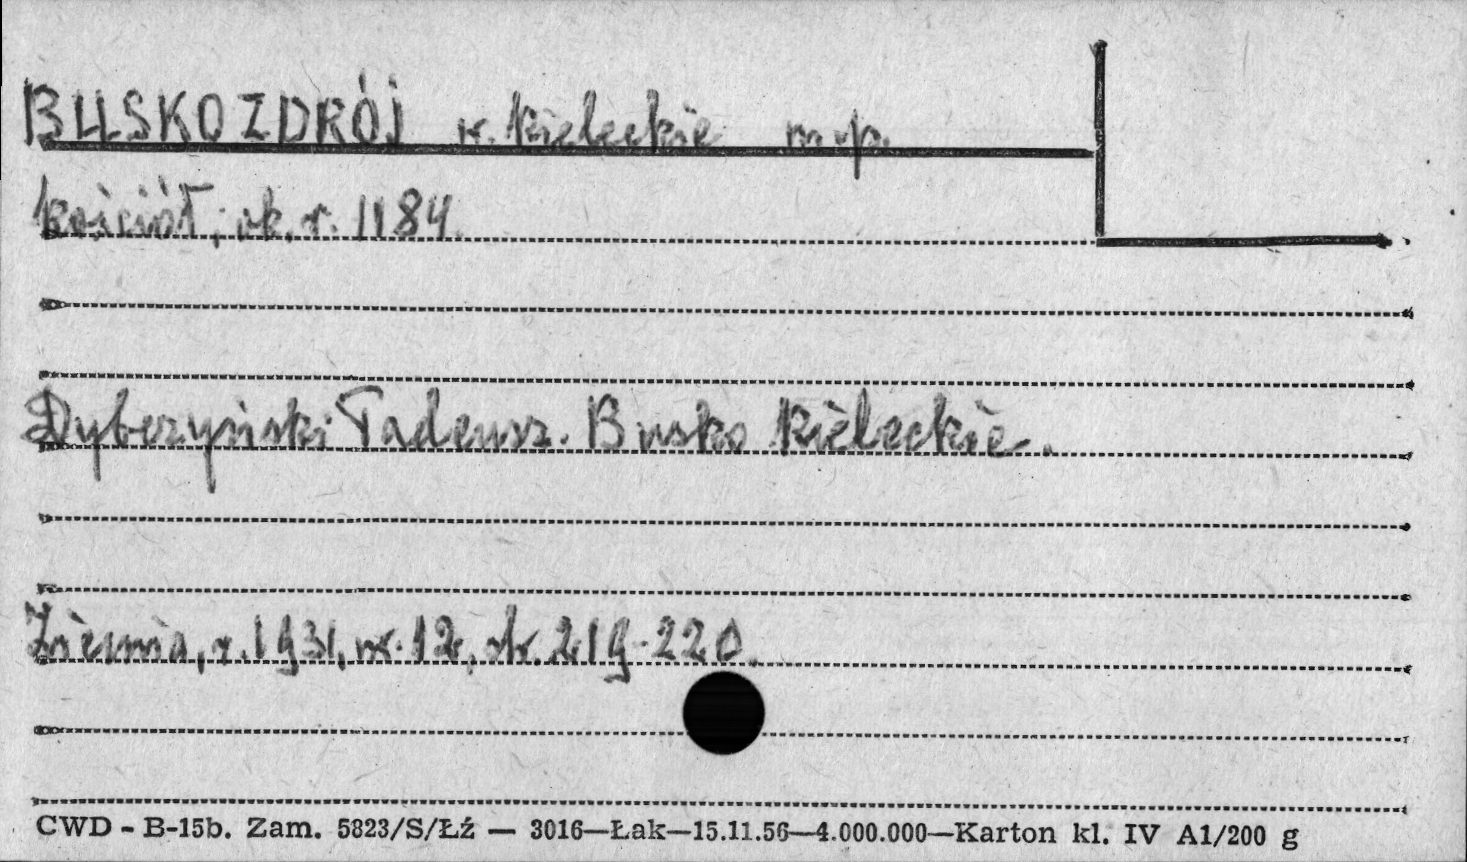 BUSKO ZDRÓJ w. kieleckie m. p.
kościół; ok. r. 1184.
Dyberzyński Tadeusz. Busko Kieleckie.
Ziemia, r. 1931, nr. 12, str. 219-220.
CWD - B-15b. Zam. 5823/S/Łź — 3016—Łak—15.11.56—4.000.000—Karton kl. IV A1/200 g